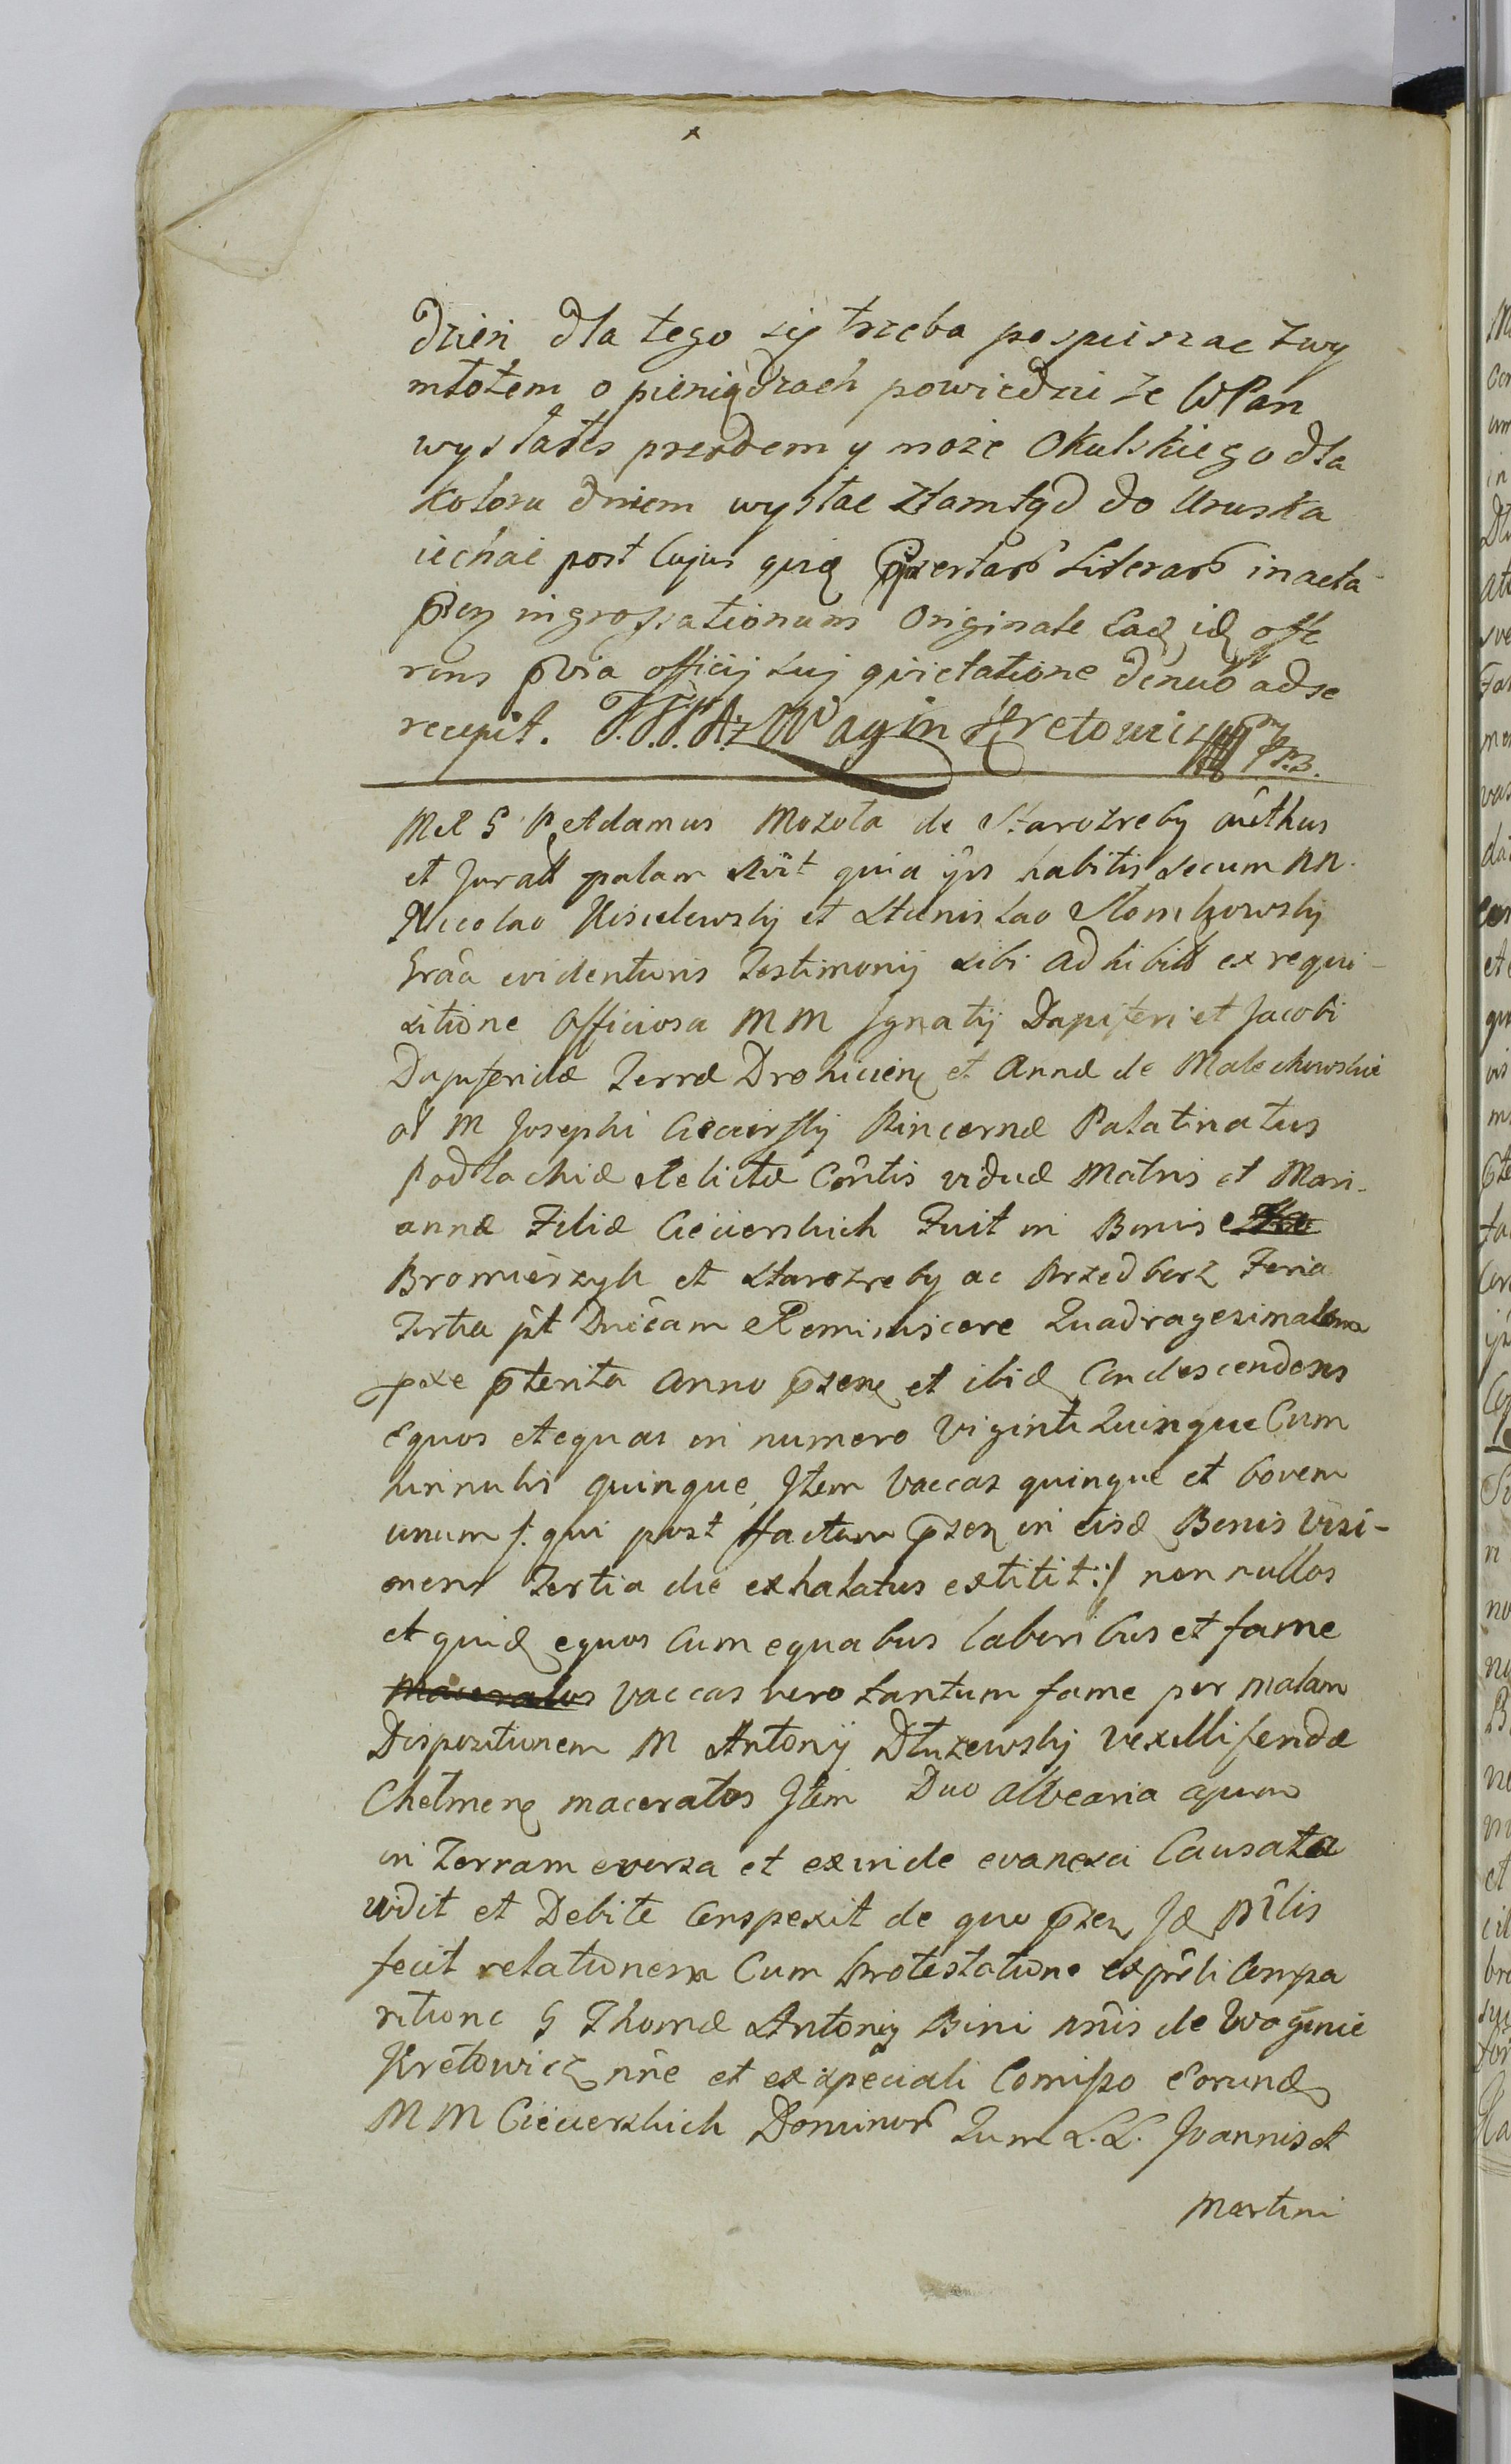 dzień dla tego się trzeba pospieszac zwy
młotem o pieniądzach powiedzi ze WPan
wysłałes przodem y moze Okulskiego dla
koloru dniem wysłac ztamtąd do Uruska
iechać post Cujus quid pntarũ Literarũ in acta
pñ ingrossationum Originale Ead id offe
rens pvia officij sui quietatione denuo ad se
recepit. T. T. A. z Wagin Kretowicz mp
M R G P et Adamus Mozola de Starozreby authus
et Jurat palam rkũit quia ijs habitis secum NN.
Nicolao Kisielewskij et Stanislao Slomkowskij
Graã evidentioris Testimonij sibi adhibit ex requi-
sitione Officiosa MM Ignatij Dapiferi et Jacobi
Dapiferidæ Terræ Drohicien et Annæ de Malechowskie
ol M Josephi Cieciersky Pincernæ Palatinatus
Podlachiæ Relictæ Contis viduæ Matris et Mari-
annæ Filiæ Ciecierskich Fuit in Bonis
Bromierzyk et Starozreby ac Przedborz Feria
Tertia pt Dnicam Reminiscere Quadragesimalem
pxe pterita Anno pzen et ibid Condescendens
Equos et equas in numero Viginti Quinque Cum
hinnulis quinque, Item Vaccas quinque et bovem
unum /: qui post factum pzen in eisd Bonis Visi-
onem Tertia die exhalatus extitit :/ non nullos
et quid equos Cum equabus laboribus et fame
maceratos vaccas vero tantum fame per malam
Dispozitionem M Antonij Dłuzewskij Vexilliferidæ
Chelmen maceratos Item Duo alvearia apum
in Terram eversa et exinde evanexci Causata
vidit et Debite Conspexit de quo pzen Id Mnlis
fecit relationem Cum Protestatione ex pnli Compa
ritione G Thomæ Antonij Bini nnis de Waginie
Kretowicz nñe et ex speciali Comisso Eorund
MM Ciecierskich Dominorũ Tum L.L. Joannis et
Martini